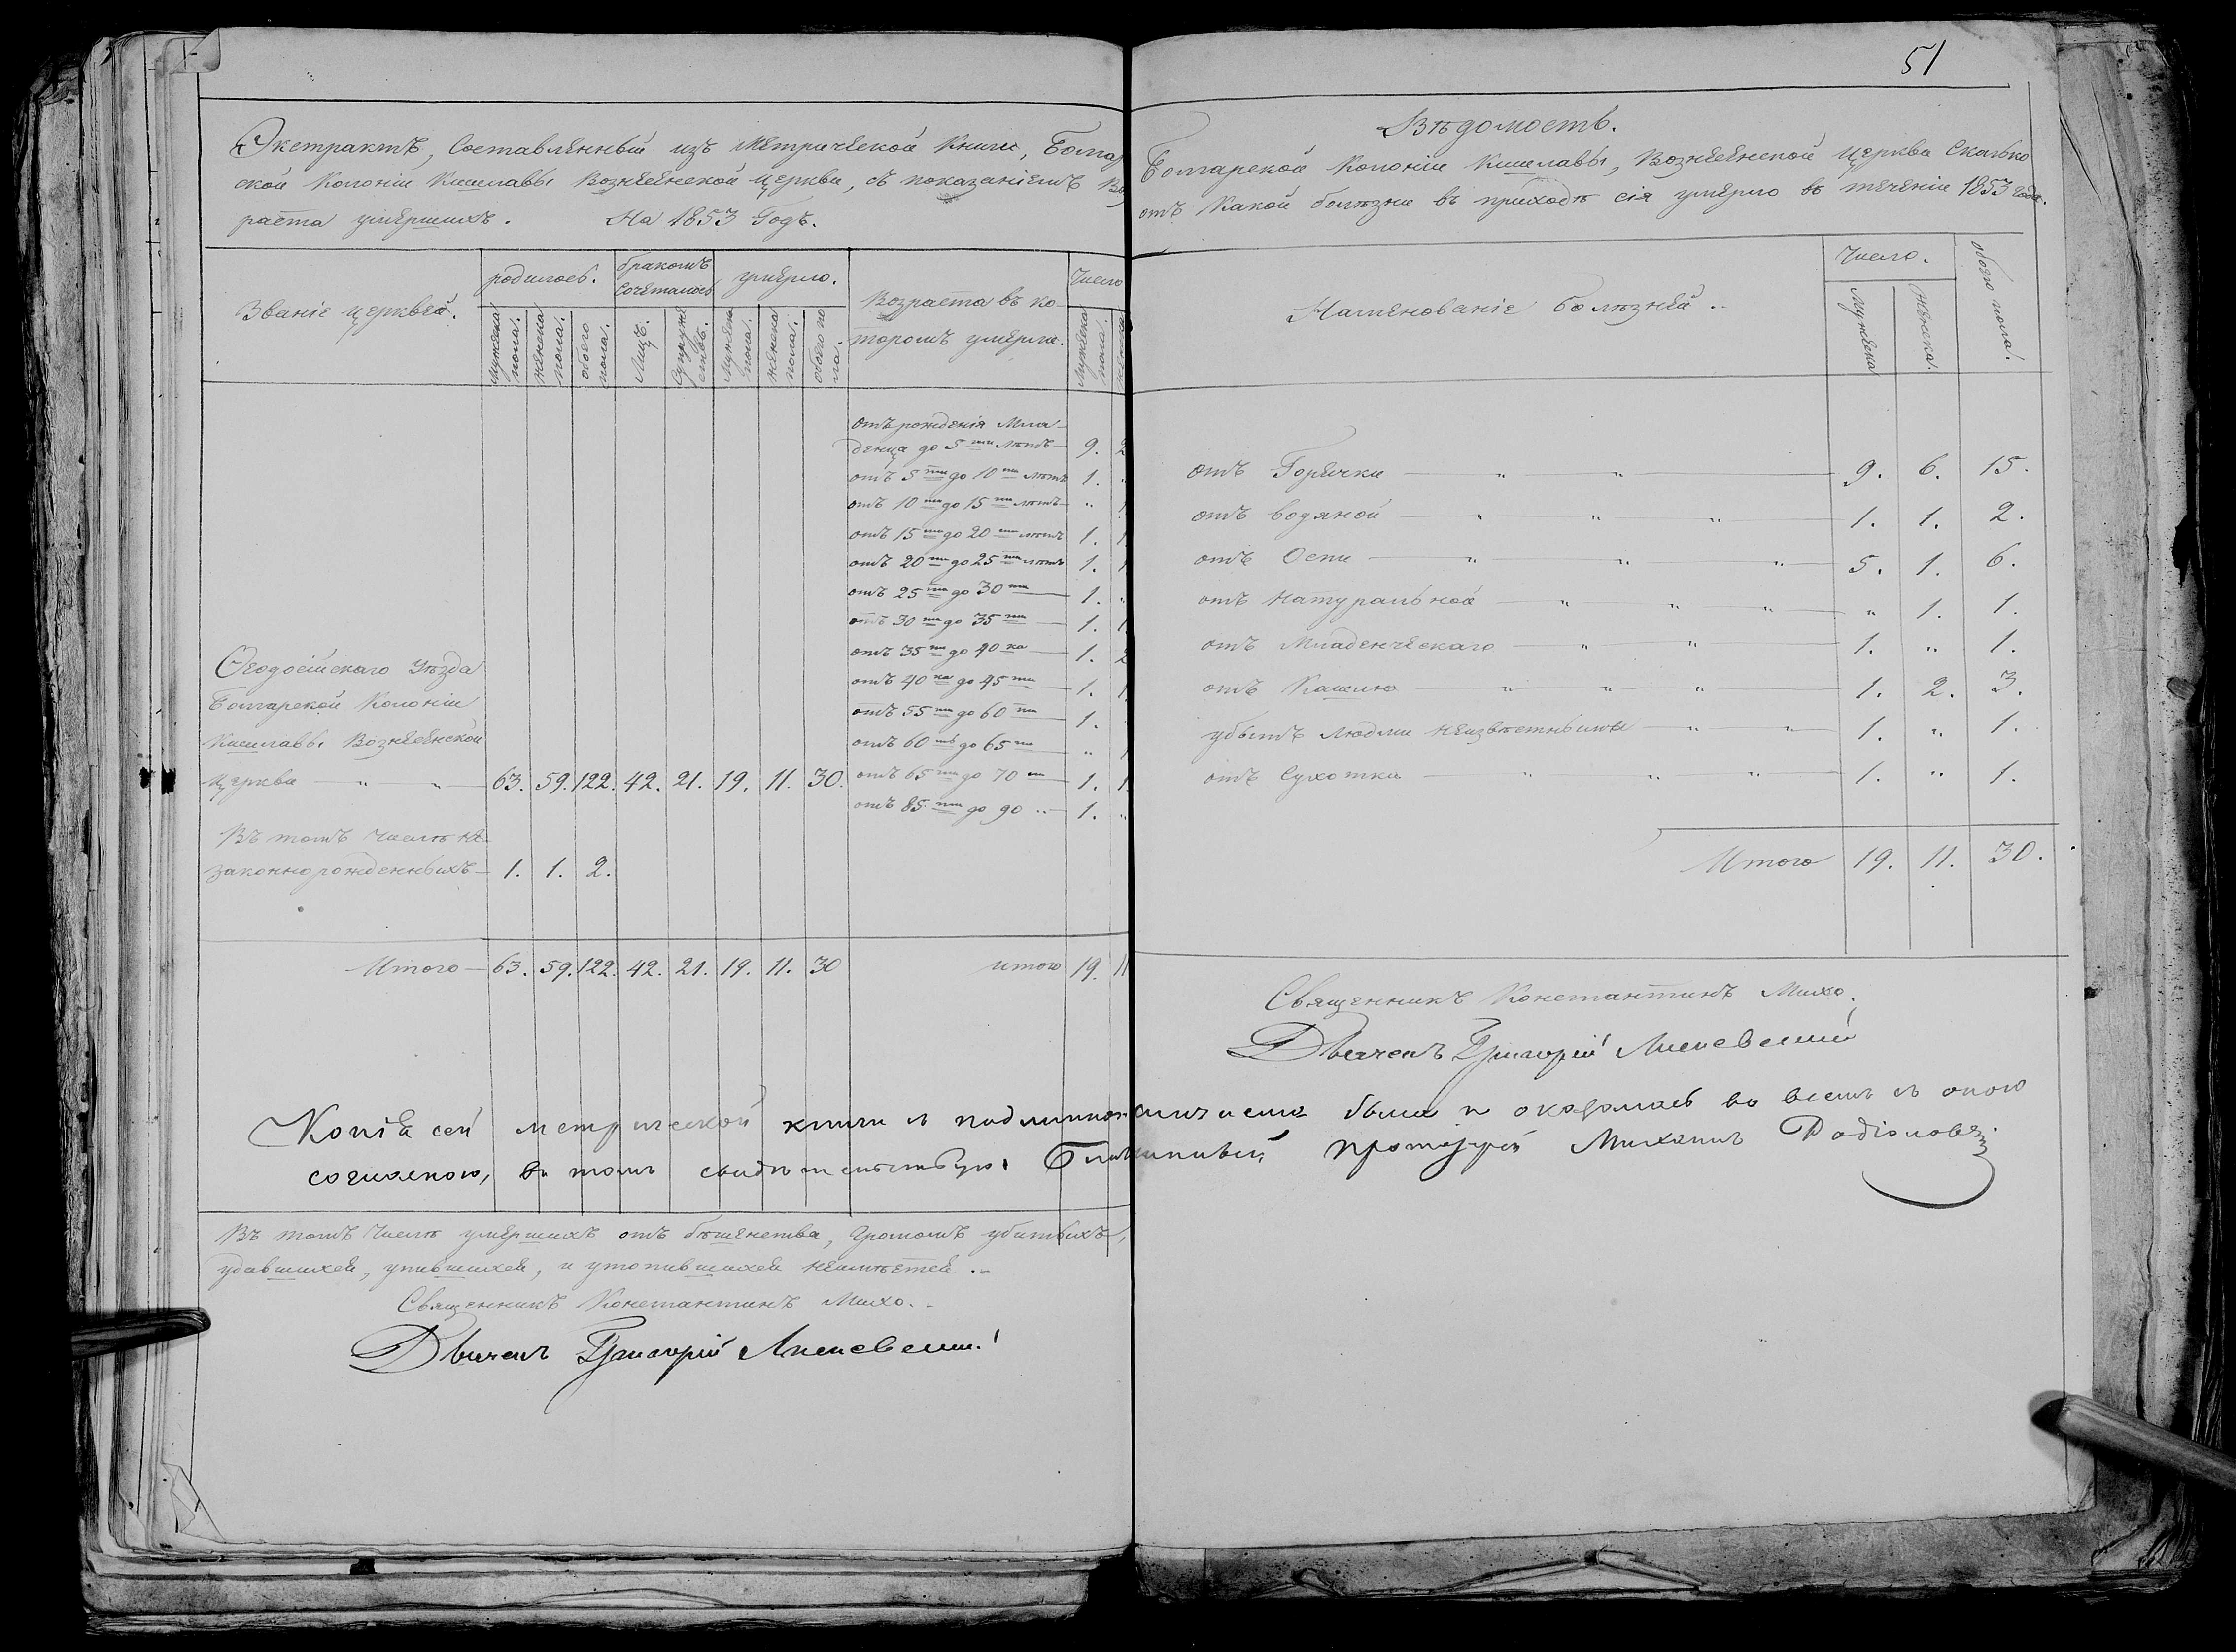 Экстрактъ, Составленный изъ Метрической Книги, Болгар
ской Колоніи Кишлавы Вознесенской Церкви, съ показаніемъ Воз
раста умершихъ. На 1853 Годъ.
Званіе Церквей.
родилось.
бракомъ Сочеталось
умерло.
Возраста въ ко
торомъ умерли.
Число
Мужеска пола.
женска пола.
обоего пола.
Лицъ.
Супруже ствъ.
Мужеска пола.
женска пола.
обоего по ла.
Мужеска пола.
отъ рожденія Мла-
денца до 5ти лѣтъ 9. 2
отъ 5ти до 10ти лѣтъ 1. "
отъ 10ти до 15ти лѣтъ " 1
отъ 15ти до 20ти лѣтъ 1. 1
отъ 20ти до 25ти лѣтъ 1. 1
отъ 25ти до 30ти 1. "
отъ 30ти до 35ти 1. 1
отъ 35ти до 40ка 1. 2
отъ 40ка до 45ти 1. 1
отъ 55ти до 60ти 1.
отъ 60ти до 65ти " 1
отъ 65ти до 70ти 1. 1
отъ 85ти до 90 1. "
Ѳеодосійскаго Уѣзда
Болгарской Колоніи
Кишлавы Вознесенской
Церкви " " 63. 59. 122. 42. 21. 19. 11. 30.
Въ томъ Числѣ не-
законнорожденныхъ 1. 1. 2.
Итого 63. 59. 122. 42. 21. 19. 11. 30 итого 19. 11
Въ томъ Числѣ умершихъ отъ бѣшенства, громомъ убитыхъ,
удавшихся, упившихся, и утопившихся неимѣется.
Священникъ Константинъ Михо.
Дьячекъ Григорій
51
Вѣдомость.
Болгарской Колоніи Кишлавы, Вознесенской Церкви Сколько
отъ Какой болѣзни въ приходѣ сія умерло въ теченіи 1853 года.
Наименованіе болѣзней.
Число.
Мужеска
Женска.
обоего пола.
отъ Горячки " " 9. 6. 15.
отъ водяной " " " 1. 1. 2.
отъ Оспи " " " 5. 1. 6.
отъ Натуральной " " " " 1. 1.
отъ Младенческаго " " 1. " 1.
отъ Кашлю " " " 1. 2. 3.
убытъ людми неизвѣстными " " 1. " 1.
отъ Сухотки " " " 1. " 1.
Итого 19. 11. 30.
Священникъ Константинъ Михо.
Дьячекъ Григорій
Копія сей метрической книги съ подлинною сличаема была и оказалась во всемъ съ оною
согласною, въ томъ свидѣтельствую. Благочинный протоіерей Михаилъ Родіоновъ